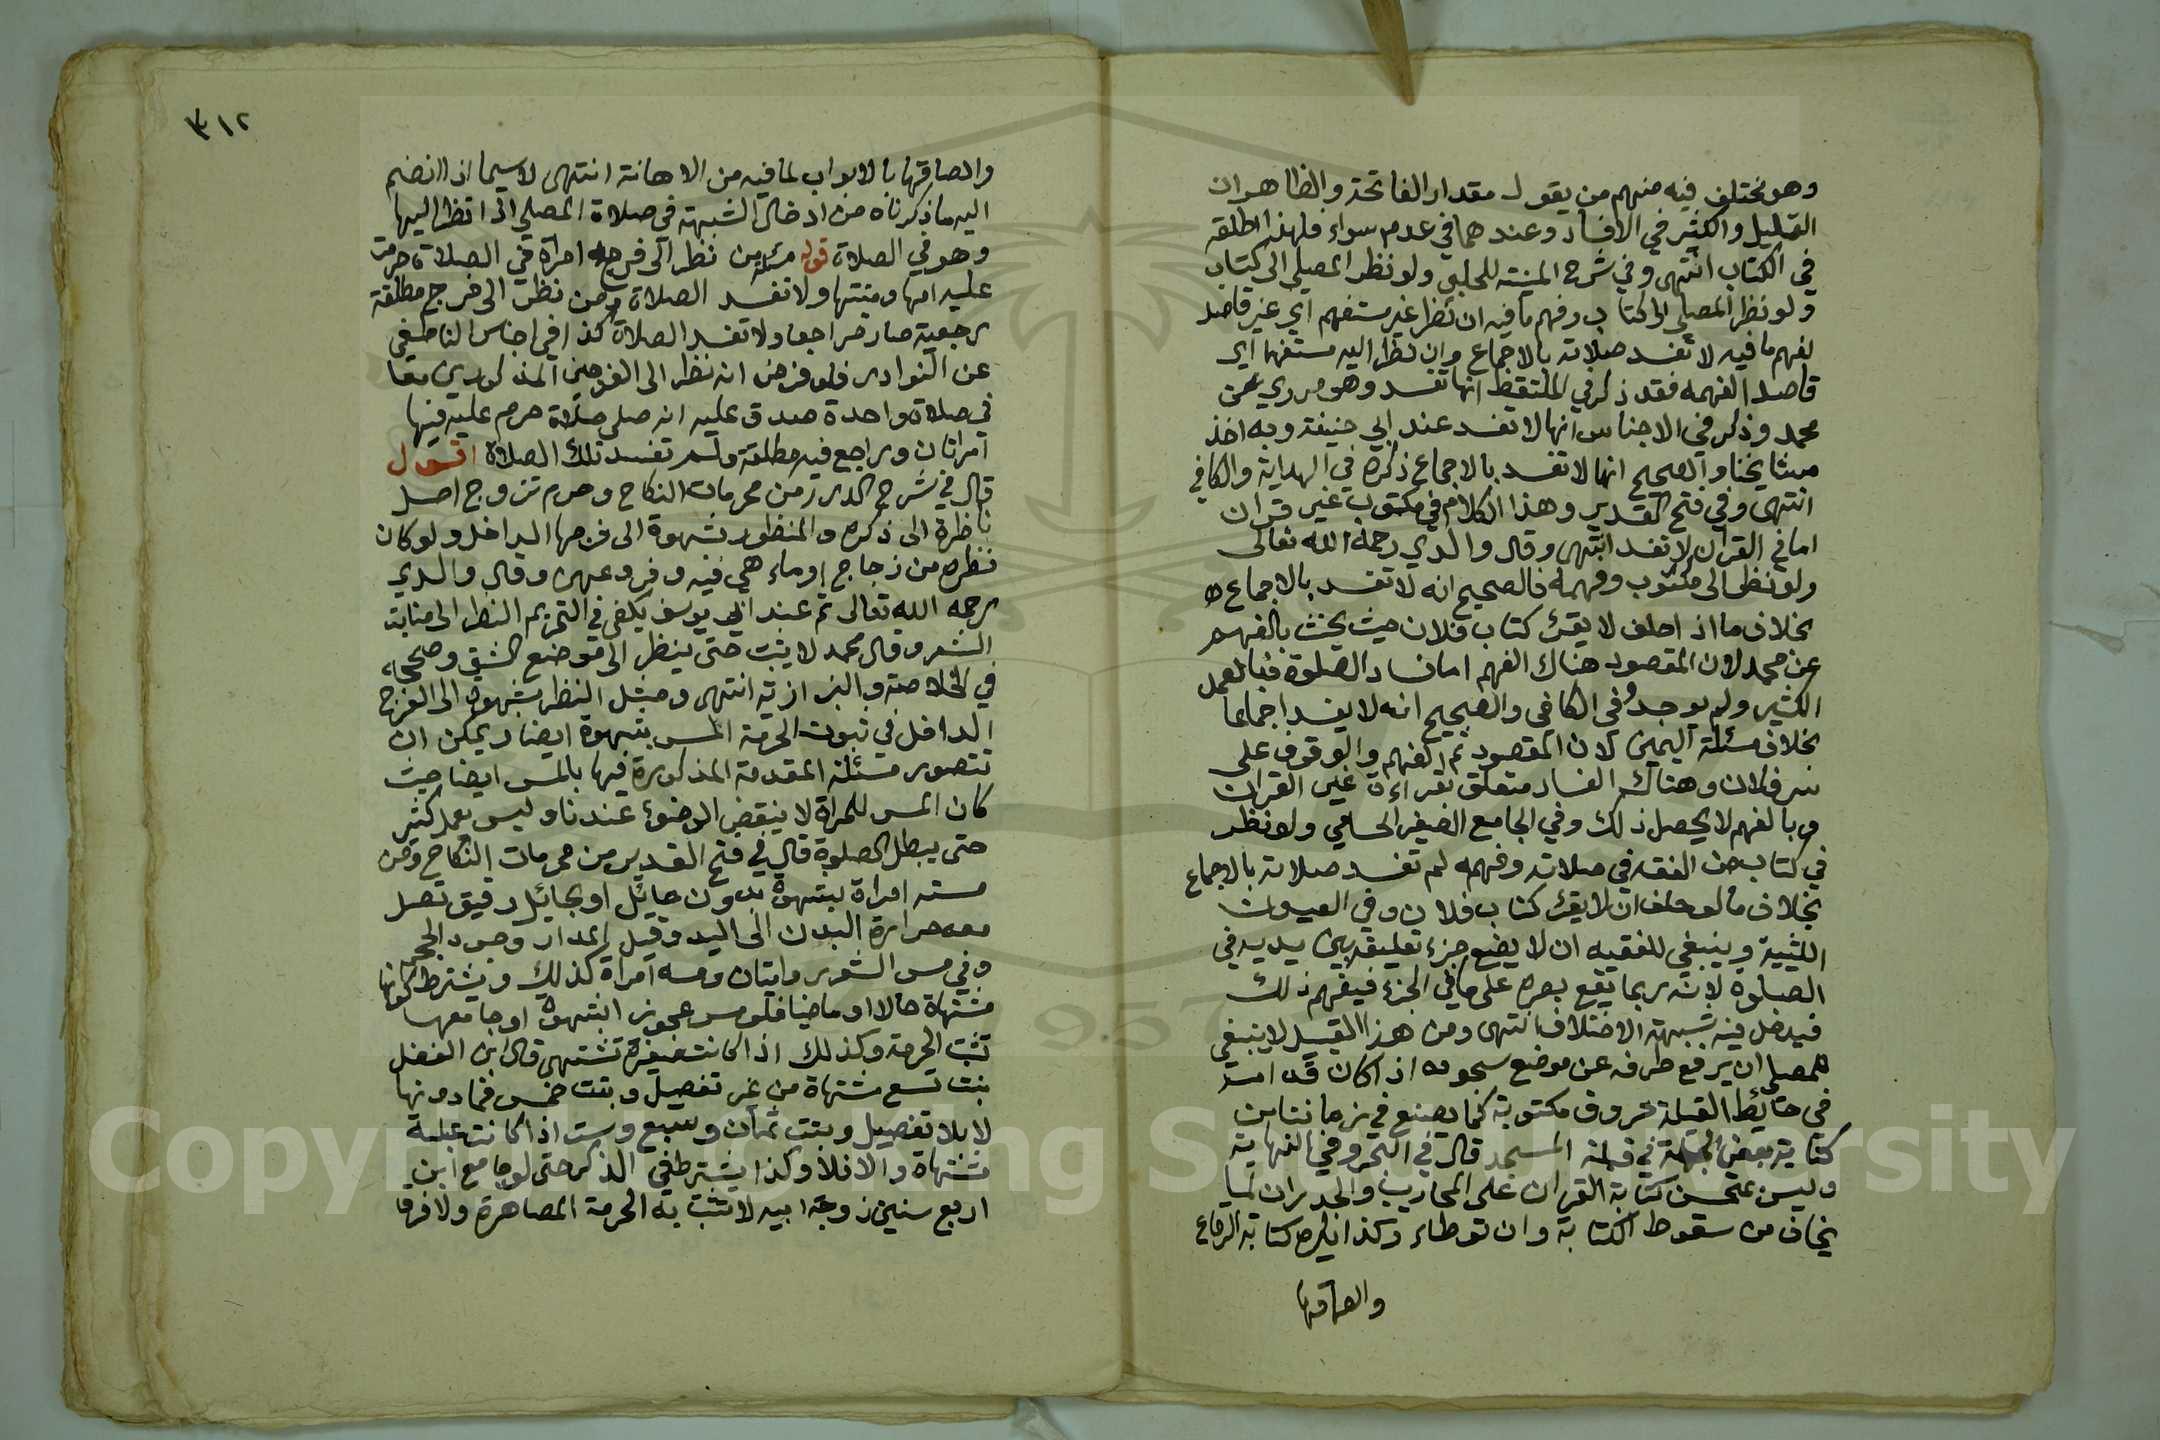 وهو مختلف فيه منهم من يقول مقدار الفاتحة والظاهر ان
القليل والكثير في الافساد وعندهما في عدمه سواء فلهذا اطلقه
في الكتاب انتهى وفي شرح المنية للحلبي ولو نظر المصلي الى كتاب
ولو نظر المصلي الى كتاب وفهم ما فيه ان نظر غير مستفهم اي غير قاصد
لفهم ما فيه لا تفسد صلاته بالاجماع وان نظر اليه مستفهما اي
قاصد الفهمه فقد ذكر في الملتقط انها تفسد وهو مروي عن
محمد وذكر في الاجناس انها لا تفسد عند ابي حنيفة وبه اخذ
مشايخنا والصحيح انها لا تفسد بالاجماع ذكره في الهداية والكافي
انتهى وفي فتح القدير وهذا الكلام في مكتوب غير قران
اما في القران لا تفسد انتهى وقال والدي رحمه الله تعالى
ولو نظر الى مكتوب وفهمه فالصحيح انه لا تفسد بالاجماع ه
بخلاف ما اذا حلف لا يقرئ كتاب فلان حيث يحنث بالفهم
عن محمد لان المقصود هناك الفهم اما فساد الصلوة فبالعمل
الكثير ولم يوجد وفي الكافي والصحيح انه لا يفسد اجماعا
بخلاف مسئلة اليمين لان المقصود ثم الفهم والوقوف على
سر فلان وهناك الفساد متعلق بقراءة غير القران
وبالفهم لا يحصل ذلك وفي الجامع الصغير الحسامي ولو نظر
في كتاب من الفقه في صلاته وفهمه لم تفسد صلاته بالاجماع
بخلاف ما لو حلف ان لا يقرئ كتاب فلان وفي العيون
الليثية وينبغي للفقيه ان لا يضع جزء تعليقه بين يديه في
الصلوة لانه ربما يقع بصره على ما في الجزء فيفهم ذلك
فيدخل فيه شبهة الاختلاف انتهى ومن هذا القبيل لا ينبغي
للمصلي ان يرفع طرفه عن موضع سجوده اذا كان قدامه
في حائط القبلة حروف مكتوبة كما يصنع في زماننا من
كتابة بعض الجهلة في قبلة المسجد قال في البحر وفي النهاية
وليس بمستحسن كتابة القران على المحاريب والجدران لما
يخاف من سقوط الكتابة وان توطاء وكذا يكره كتابة الرقاع
والصاقها
٣١٢
والصاقها بالابواب لما فيه من الاهانة انتهى لا سيما اذا انضم
اليه ما ذكرناه من ادخال الشبهة في صلاة المصلي اذا نظر اليها
وهو في الصلاة قوله مسئلة من نظر الى فرج امراة في الصلاة حرمت
عليه امها وبنتها ولا تفسد الصلاة ومن نظر الى فرج مطلقة
رجعية صار مراجعا ولا تفسد الصلاة كذا في اجناس الناطفي
عن النوادر فلو فرض انه نظر الى الفرجين المذكورين معا
في صلاة واحدة صدق عليه انه صلى صلاة حرم عليه فيها
امراتان وراجع فيه مطلقة ولم تفسد تلك الصلاة اقول
قال في شرح الدرر من محرمات النكاح وحرم تزوج اصل
ناظرة الى ذكره والمنظور بشهوة الى فرجها الداخل ولو كان
نظره من زجاج او ماء هي فيه وفروعهن وقال والدي
رحمه الله تعالى ثم عند ابي يوسف يكفي في التحريم النظر الى منابت
الشعر وقال محمد لا يثبت حتى ينظر الى موضع الشق وصححه
في الخلاصة والبزازية انتهى ومثل النظر بشهوة الى الفرج
الداخل في ثبوت الحرمة المس بشهوة ايضا ويمكن ان
تتصور مسئلة المقدمة المذكورة فيها بالمس ايضا حيث
كان المس للمراة لا ينقض الوضوء عندنا وليس بعمل كثير
حتى يبطل الصلوة قال في فتح القدير من محرمات النكاح ومن
مسته امراة بشهوة بدون حائل او بحائل رقيق تصل
معه حرارة البدن الى اليد وقيل المدار وجود الحجم
وفي مس الشعر روايتان ومسه امراة كذلك ويشترط كونها
مشتهاة حالا او ماضيا فلو مس عجوزا بشهوة او جامعها
تثبت الحرمة وكذلك اذا كانت صغيرة تشتهى قال ابن الفضل
بنت تسع مشتهاة من غير تفصيل وبنت خمس فما دونها
لا بلا تفصيل وبنت ثمان وسبع وست اذا كانت عبلة
مشتهاة والا فلا وكذا يشترط في الذكر حتى لو جامع ابن
اربع سنين زوجة ابيه لا تثبت به الحرمة المصاهرة ولا فرق
Copyright © King Saud University
1957